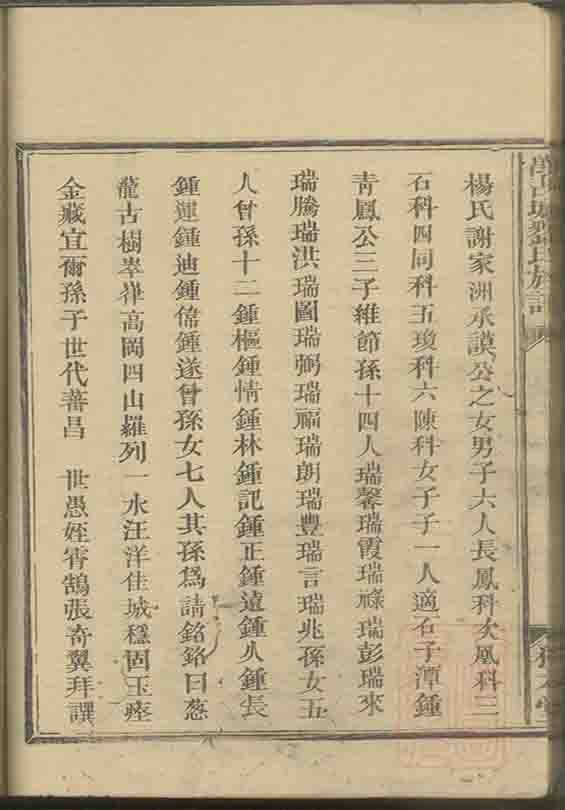 劉氏族譜
楊氏謝家洲承謨公之女男子六人長鳳科次凰科三
石科四同科五瓊科六陳科女子子一人適石子潭鍾
青鳳公三子維節孫十四人瑞馨瑞霞瑞祿瑞彭瑞來
瑞騰瑞洪瑞圖瑞弼瑞福瑞朗瑞豐瑞言瑞兆孫女五
人曾孫十二鍾樞鍾情鍾林鍾記鍾正鍾遠鍾火鍾長
鍾運鍾迪鍾偉鍾遂曾孫女七人其孫爲請銘銘曰葱
蘢古樹崒嵂高岡四山羅列一水汪洋佳城穩固玉瘞
金藏宜爾孫子世代蕃昌 世愚姪霄鵠張奇翼拜譔